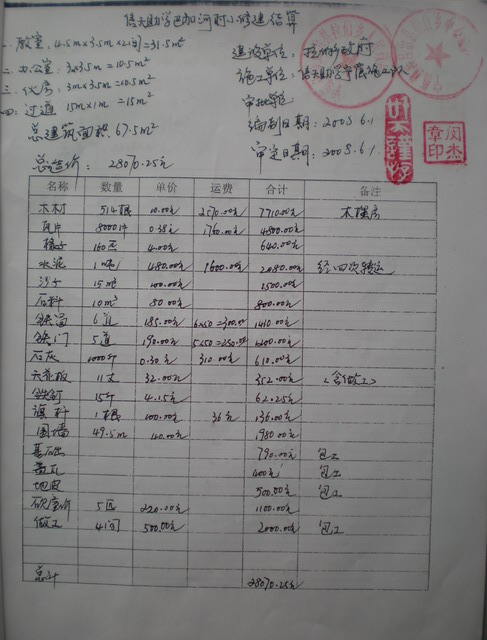 信天助学巴加河村小修建结算
一. 教室: 4.5m×3.5m×2间=31.5m²
二. 办公室: 3×3.5m=10.5m²
三. 伙房: 3m×3.5m=10.5m²
四. 过道 15m×1m=15m²
总建筑面积 67.5m²
总造价: 28070.25元
建设单位:
施工单位: 信天助学
审批单位
编制日期: 2003.6.1
审定日期: 2003.6.1
闵杰章印
名称 数量 单价 运费 合计 备注
木材 514根 10.00元 2570.00元 7710.00元 木楼房
瓦片 8000片 0.38元 1760.00元 4800.00元
椽子 160匹 4.00元 640.00元
水泥 1吨 480.00元 1600.00元 2080.00元 经四次转运
沙子 15m³ 100.00元 1500.00元
石料 10m³ 80.00元 800.00元
铁窗 6道 185.00元 6×50=300.00 1410.00元
铁门 5道 190.00元 5×50=250.00 1200.00元
石灰 1000斤 0.30元 310.00元 610.00元
天花板 11丈 32.00元 352.00元 (含做工)
铁钉 15斤 4.15元 62.25元
旗杆 1根 100.00元 36元 136.00元
围墙 49.5m 40.00元 1980.00元
基础 790.00元 包工
盖瓦 400元 包工
地皮 500.00元 包工
5匹 220.00元 1100.00元
做工 4间 500.00元 2000.00元 包工
总计 28070.25元